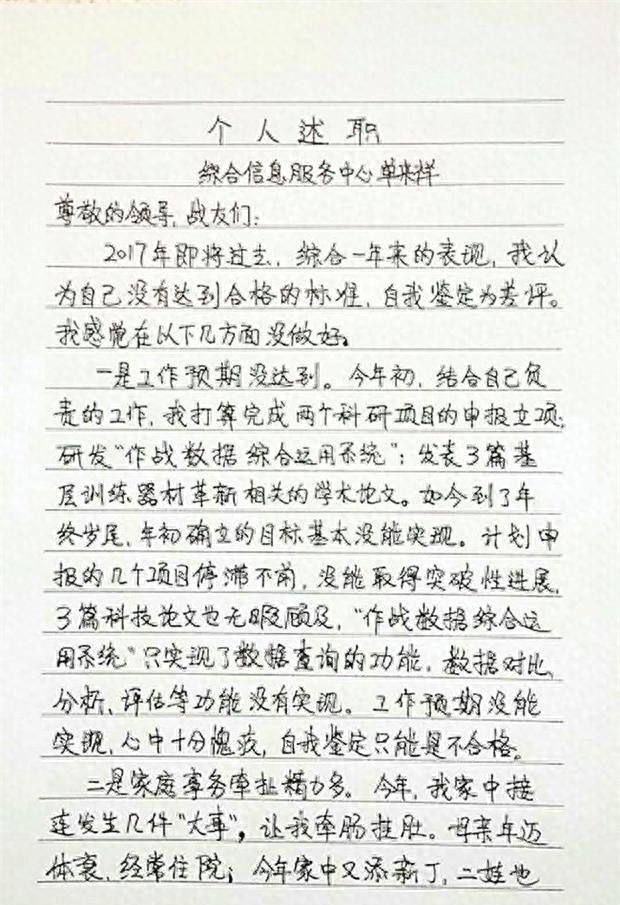 个人述职
综合信息服务中心单来祥
尊敬的领导,战友们:
2017年即将过去,综合一年来的表现,我认
为自己没有达到合格的标准,自我鉴定为差评。
我感觉在以下几方面没做好。
一是工作预期没达到。今年初,结合自己负
责的工作,我打算完成两个科研项目的申报立项;
研发“作战数据综合运用系统”;发表3篇基
层训练器材革新相关的学术论文。如今到了年
终岁尾,年初确立的目标基本没能实现。计划申
报的几个项目停滞不前,没能取得突破性进展,
3篇科技论文也无暇顾及,“作战数据综合运
用系统”只实现了数据查询的功能,数据对比、
分析、评估等功能没有实现。工作预期没能
实现,心中十分愧疚,自我鉴定只能是不合格。
二是家庭事务牵扯精力多。今年,我家中接
连发生几件“大事”,让我牵肠挂肚。母亲年迈
体衰,经常住院;今年家中又添新丁,二娃也